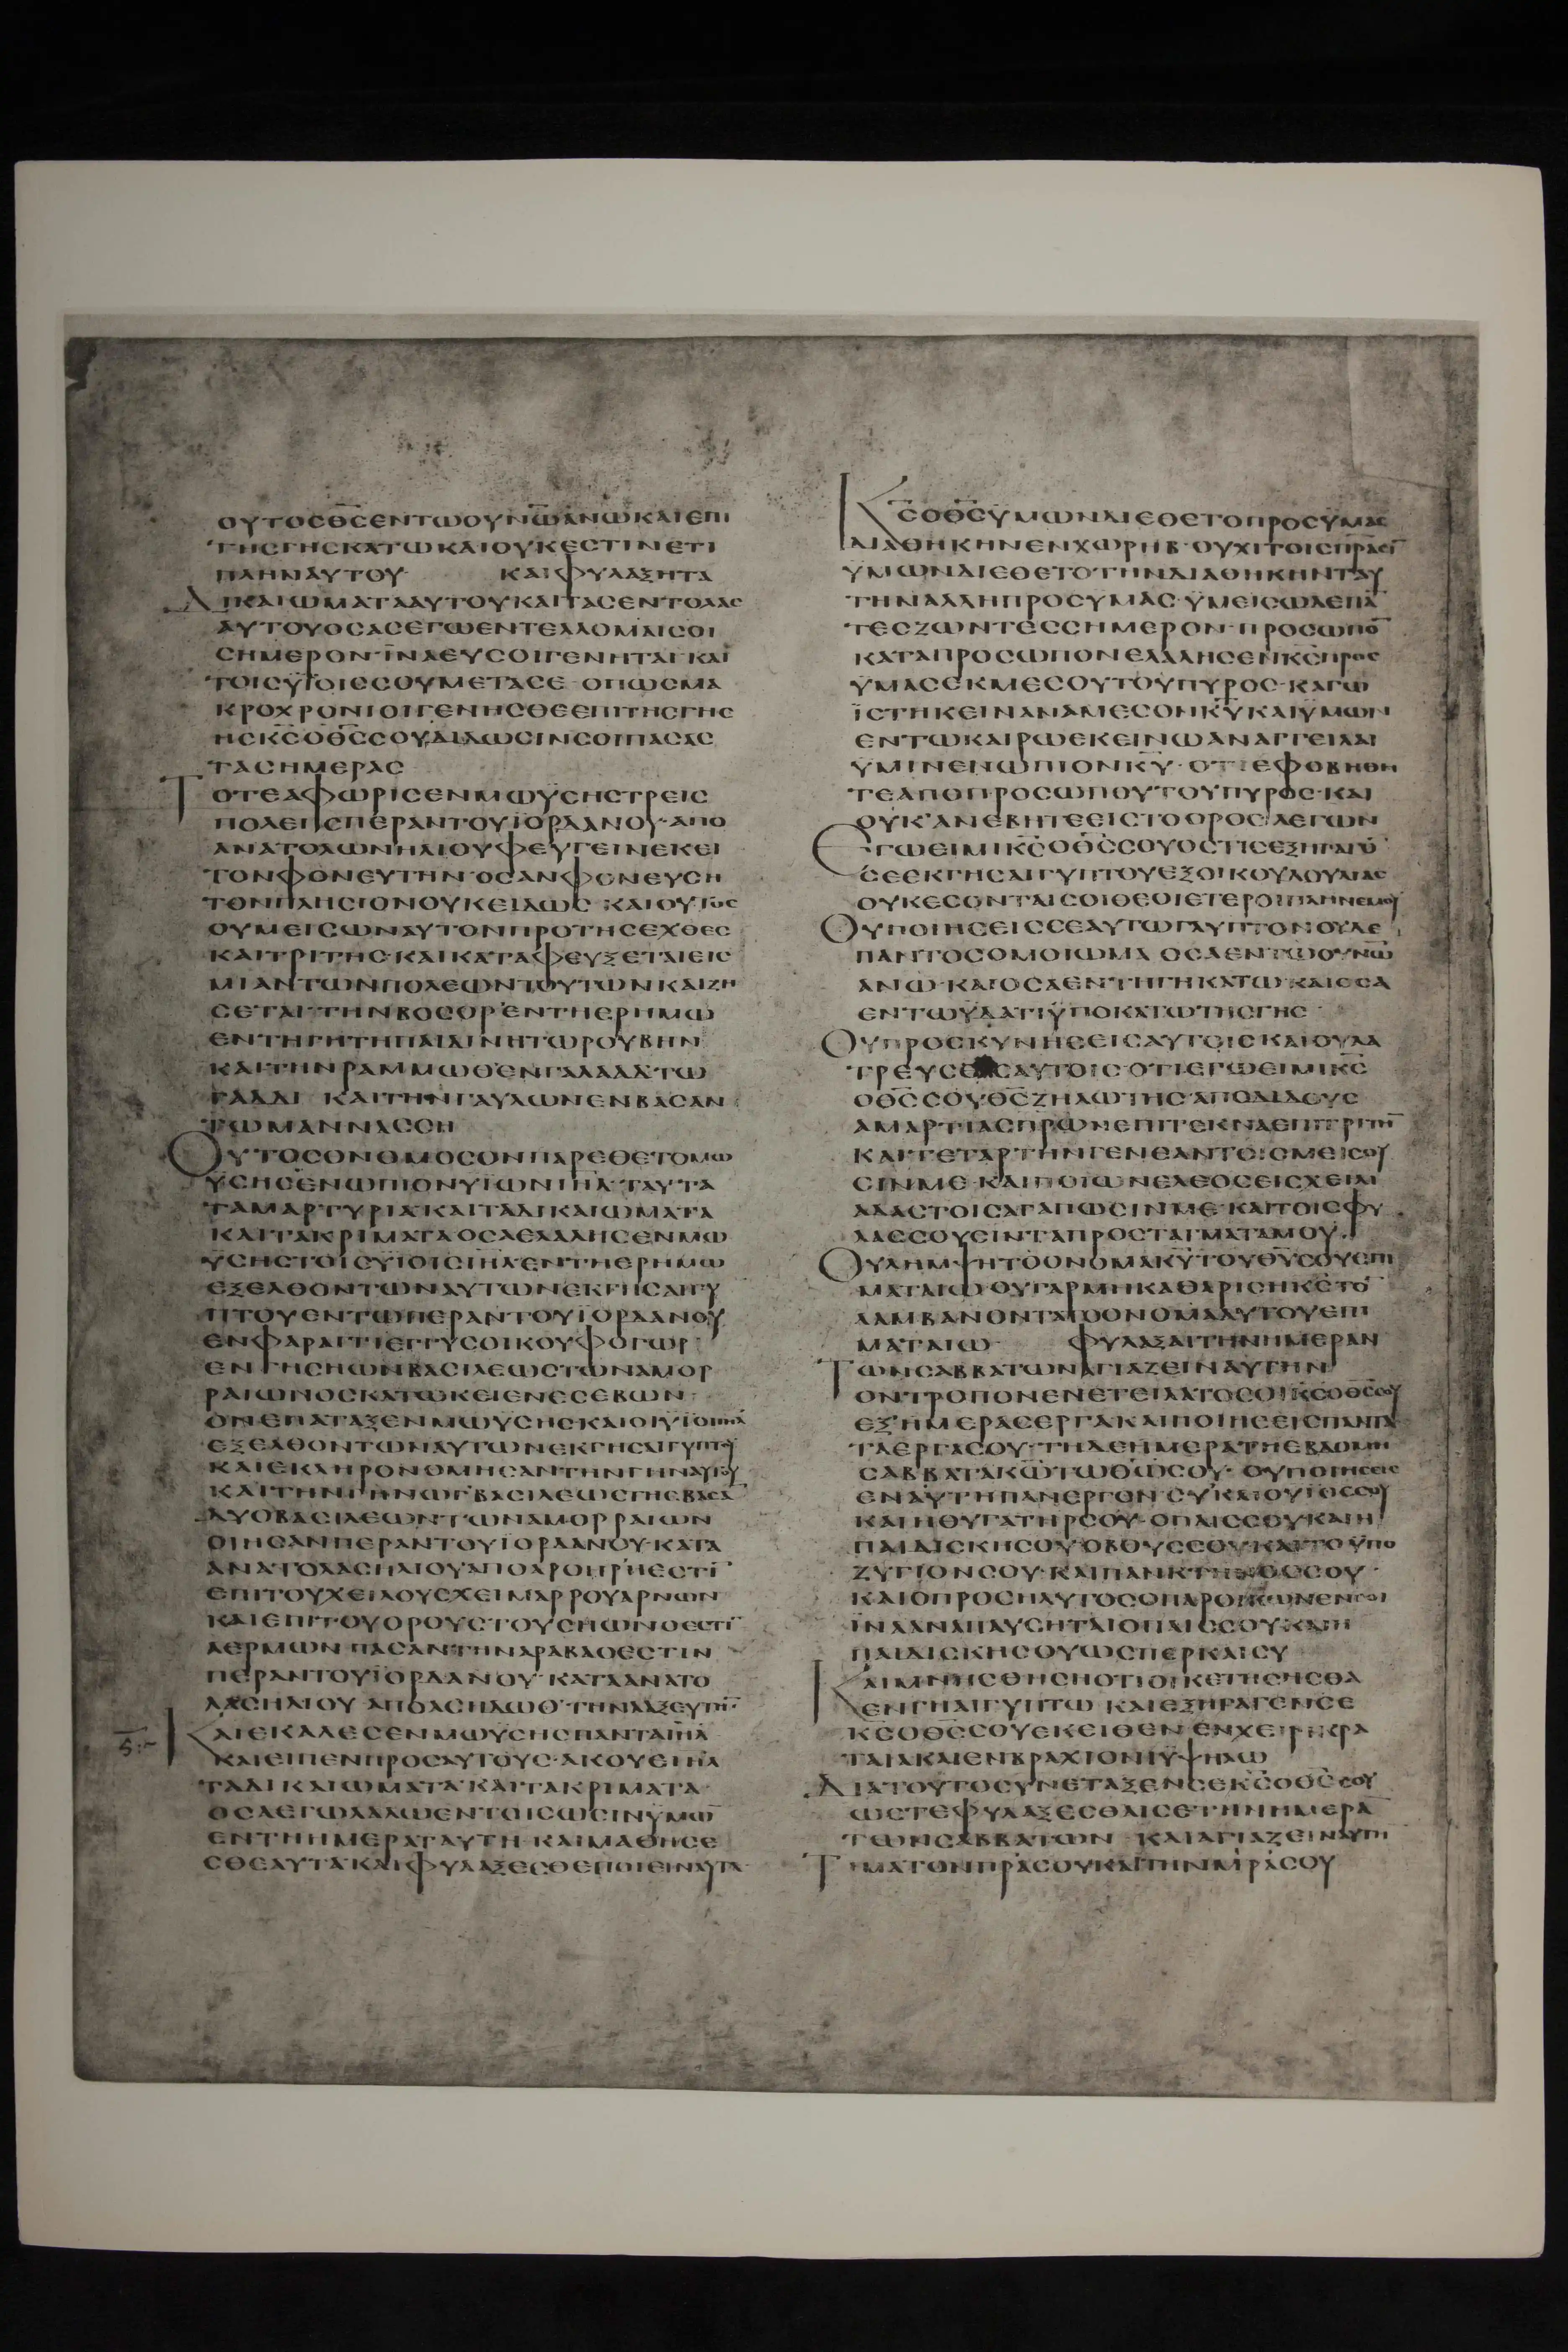 ΟΥΤΟCΘ̅C̅ΕΝΤΩΟΥΝΩ̅ΑΝΩΚΑΙΕΠΙ
ΤΗCΓΗCΚΑΤΩΚΑΙΟΥΚΕCΤΙΝΕΤΙ
ΠΛΗΝΑΥΤΟΥ ΚΑΙΦΥΛΑΞΗΤΑ
ΔΙΚΑΙΩΜΑΤΑΑΥΤΟΥΚΑΙΤΑCΕΝΤΟΛΑC
ΑΥΤΟΥΟCΑCΕΓΩΕΝΤΕΛΛΟΜΑΙCΟΙ
CΗΜΕΡΟΝ·ΪΝΑΕΥCΟΙΓΕΝΗΤΑΙ·ΚΑΙ
ΤΟΙCΫΪΟΙCCΟΥΜΕΤΑCΕ·ΟΠΩCΜΑ
ΚΡΟΧΡΟΝΙΟΙΓΕΝΗCΘΕΕΠΙΤΗCΓΗC
ΗCΚ̅C̅ΟΘ̅C̅CΟΥΔΙΔΩCΙΝCΟΙΠΑCΑC
ΤΑCΗΜΕΡΑC
ΤΟΤΕΑΦΩΡΙCΕΝΜΩΫCΗCΤΡΕΙC
ΠΟΛΕΙCΠΕΡΑΝΤΟΥΪΟΡΔΑΝΟΥ·ΑΠΟ
ΑΝΑΤΟΛΩΝΗΛΙΟΥΦΕΥΓΕΙΝΕΚΕΙ
ΤΟΝΦΟΝΕΥΤΗΝ·ΟCΑΝΦΟΝΕΥCΗ
ΤΟΝΠΛΗCΙΟΝΟΥΚΕΙΔΩC·ΚΑΙΟΥΤΟC
ΟΥΜΕΙCΩΝΑΥΤΟΝΠΡΟΤΗCΕΧΘΕC
ΚΑΙΤΡΙΤΗC·ΚΑΙΚΑΤΑΦΕΥΞΕΤΑΙΕΙC
ΜΙΑΝΤΩΝΠΟΛΕΩΝΤΟΥΤΩΝΚΑΙΖΗ
CΕΤΑΙ·ΤΗΝΒΟCΟΡΕΝΤΗΕΡΗΜΩ
ΕΝΤΗΓΗΤΗΠΑΙΔΙΝΗΤΩΡΟΥΒΗΝ
ΚΑΙΤΗΝΡΑΜΜΩΘΕΝΓΑΛΑΑΔΤΩ
ΓΑΔΔΙ ΚΑΙΤΗΝΓΑΥΛΩΝΕΝΒΑCΑΝ
ΤΩΜΑΝΝΑCCΗ
ΟΥΤΟCΟΝΟΜΟCΟΝΠΑΡΕΘΕΤΟΜΩ
ΥCΗCΕΝΩΠΙΟΝΥΪΩΝΙ̅Η̅Λ̅·ΤΑΥΤΑ
ΤΑΜΑΡΤΥΡΙΑ·ΚΑΙΤΑΔΙΚΑΙΩΜΑΤΑ
ΚΑΙΤΑΚΡΙΜΑΤΑΟCΑΕΛΑΛΗCΕΝΜΩ
ΥCΗCΤΟΙCΥΪΟΙCΙ̅Η̅Λ̅ΕΝΤΗΕΡΗΜΩ
ΕΞΕΛΘΟΝΤΩΝΑΥΤΩΝΕΚΓΗCΑΙΓΥ
ΠΤΟΥΕΝΤΩΠΕΡΑΝΤΟΥΪΟΡΔΑΝΟΥ
ΕΝΦΑΡΑΓΓΙΕΓΓΥCΟΙΚΟΥΦΟΓΩΡ
ΕΝΓΗCΗΩΝΒΑCΙΛΕΩCΤΩΝΑΜΟΡ
ΡΑΙΩΝΟCΚΑΤΩΚΕΙΕΝΕCΕΒΩΝ·
ΟΝΕΠΑΤΑΞΕΝΜΩΥCΗCΚΑΙΟΙΥΪΟΙΙ̅Η̅Λ̅
ΕΞΕΛΘΟΝΤΩΝΑΥΤΩΝΕΚΓΗCΑΙΓΥΠΤΟΥ
ΚΑΙΕΚΛΗΡΟΝΟΜΗCΑΝΤΗΝΓΗΝΑΥΤΟΥ
ΚΑΙΤΗΝΓΗΝΩΓΒΑCΙΛΕΩCΓΗCΒΑCΑ̅
ΔΥΟΒΑCΙΛΕΩΝΤΩΝΑΜΟΡΡΑΙΩΝ
ΟΙΗCΑΝΠΕΡΑΝΤΟΥΪΟΡΔΑΝΟΥ·ΚΑΤΑ
ΑΝΑΤΟΛΑCΗΛΙΟΥΑΠΟΑΡΟΗΡΗΕCΤΙ̅
ΕΠΙΤΟΥΧΕΙΛΟΥCΧΕΙΜΑΡΡΟΥΑΡΝΩΝ
ΚΑΙΕΠΙΤΟΥΟΡΟΥCΤΟΥCΗΩΝΟΕCΤΙ̅
ΑΕΡΜΩΝ·ΠΑCΑΝΤΗΝΑΡΑΒΑΟΕCΤΙΝ
ΠΕΡΑΝΤΟΥΪΟΡΔΑΝΟΥ·ΚΑΤΑΑΝΑΤΟ
ΛΑCΗΛΙΟΥ
ΚΑΙΕΚΑΛΕCΕΝΜΩΫCΗCΠΑΝΤΑΙ̅Η̅Λ̅
ΚΑΙΕΙΠΕΝΠΡΟCΑΥΤΟΥC·ΑΚΟΥΕΙ̅Η̅Λ̅
ΤΑΔΙΚΑΙΩΜΑΤΑ·ΚΑΙΤΑΚΡΙΜΑΤΑ
ΟCΑΕΓΩΛΑΛΩΕΝΤΟΙCΩCΙΝΫΜΩ̅
ΕΝΤΗΗΜΕΡΑΤΑΥΤΗ·ΚΑΙΜΑΘΗCΕ
CΘΕΑΥΤΑ·ΚΑΙΦΥΛΑΞΕCΘΕΠΟΙΕΙΝΑΥΤΑ
Κ̅C̅ΟΘ̅C̅ΫΜΩΝΔΙΕΘΕΤΟΠΡΟCΫΜΑC
ΔΙΑΘΗΚΗΝΕΝΧΩΡΗΒ·ΟΥΧΙΤΟΙCΠ̅Ρ̅ΑCΙ̅
ΥΜΩΝΔΙΕΘΕΤΟΤΗΝΔΙΑΘΗΚΗΝΤΑΥ
ΤΗΝΑΛΛΗΠΡΟCΥΜΑC·ΫΜΕΙCΩΔΕΠΑ̅
ΤΕCΖΩΝΤΕCCΗΜΕΡΟΝ·ΠΡΟCΩΠΟ̅
ΚΑΤΑΠΡΟCΩΠΟΝΕΛΑΛΗCΕΝΚ̅C̅ΠΡΟC
ΫΜΑCΕΚΜΕCΟΥΤΟΥΠΥΡΟC·ΚΑΓΩ
ΪCΤΗΚΕΙΝΑΝΑΜΕCΟΝΚ̅Υ̅ΚΑΙΫΜΩΝ
ΕΝΤΩΚΑΙΡΩΕΚΕΙΝΩΑΝΑΓΓΕΙΛΑΙ
ΫΜΙΝΕΝΩΠΙΟΝΚ̅Υ̅·ΟΤΙΕΦΟΒΗΘΗ
ΤΕΑΠΟΠΡΟCΩΠΟΥΤΟΥΠΥΡΟC·ΚΑΙ
ΟΥΚΑΝΕΒΗΤΕΕΙCΤΟΟΡΟCΛΕΓΩΝ
ΕΓΩΕΙΜΙΚ̅C̅ΟΘ̅C̅CΟΥΟCΤΙC
CΕΕΚΓΗCΑΙΓΥΠΤΟΥΕΞΟΙΚΟΥΔΟΥΛΙΑC
ΟΥΚΕCΟΝΤΑΙCΟΙΘΕΟΙΕΤΕΡΟΙΠΛΗΝΕΜΟΥ
ΟΥΠΟΙΗCΕΙCCΕΑΥΤΩΓΛΥΠΤΟΝΟΥΔΕ
ΠΑΝΤΟCΟΜΟΙΩΜΑ·ΟCΑΕΝΤΩΟΥΝΩ̅
ΑΝΩ·ΚΑΙΟCΑΕΝΤΗΓΗΚΑΤΩ·ΚΑΙΟCΑ
ΕΝΤΩΫΔΑΤΙΫΠΟΚΑΤΩΤΗCΓΗC
ΟΥΠΡΟCΚΥΝΗCΕΙCΑΥΤΟΙCΚΑΙΟΥΛΑ
ΑΥΤΟΙC·ΟΤΙΕΓΩΕΙΜΙΚ̅C̅
ΟΘ̅C̅CΟΥΘ̅C̅ΖΗΛΩΤΗC·ΑΠΟΔΙΔΟΥC
ΑΜΑΡΤΙΑCΠ̅Ρ̅ΩΝΕΠΙΤΕΚΝΑΕΠΙΤΡΙΤΗ̅
ΚΑΙΤΕΤΑΡΤΗΝΓΕΝΕΑΝΤΟΙCΜΕΙCΟΥ
CΙΝΜΕ·ΚΑΙΠΟΙΩΝΕΛΕΟCΕΙCΧΕΙΛΙ
ΑΔΑCΤΟΙCΑΓΑΠΩCΙΝΜΕ·ΚΑΙΤΟΙCΦΥ
ΛΑCCΟΥCΙΝΤΑΠΡΟCΤΑΓΜΑΤΑΜΟΥ·
ΟΥΛΗΜΨΗΤΟΟΝΟΜΑΚ̅Υ̅ΤΟΥΘ̅Υ̅CΟΥΕΠΙ
ΜΑΤΑΙΩ·ΟΥΓΑΡΜΗΚΑΘΑΡΙCΗΚ̅C̅ΤΟ̅
ΛΑΜΒΑΝΟΝΤΑΤΟΟΝΟΜΑΑΥΤΟΥΕΠΙ
ΜΑΤΑΙΩ ΦΥΛΑΞΑΙΤΗΝΗΜΕΡΑΝ
ΤΩΝCΑΒΒΑΤΩΝΑΓΙΑΖΕΙΝΑΥΤΗΝ
ΟΝΤΡΟΠΟΝΕΝΕΤΕΙΛΑΤΟCΟΙΚ̅C̅ΟΘ̅C̅CΟΥ
ΕΞΗΜΕΡΑCΕΡΓΑΚΑΙΠΟΙΗCΕΙCΠΑΝΤΑ
ΤΑΕΡΓΑCΟΥ·ΤΗΔΕΗΜΕΡΑΤΗΕΒΔΟΜΗ
CΑΒΒΑΤΑΚ̅Ω̅ΤΩΘ̅Ω̅CΟΥ·ΟΥΠΟΙΗCΕΙC
ΕΝΑΥΤΗΠΑΝΕΡΓΟΝ·CΥΚΑΙΟΥΪΟCCΟΥ
ΚΑΙΗΘΥΓΑΤΗΡCΟΥ·ΟΠΑΙCCΟΥΚΑΙΗ
ΠΑΙΔΙCΚΗCΟΥ·ΟΒΟΥCCΟΥ·ΚΑΙΤΟΫΠΟ
ΖΥΓΙΟΝCΟΥ·ΚΑΙΠΑΝΚΤΗΝΟCCΟΥ·
ΚΑΙΟΠΡΟCΗΛΥΤΟCΟΠΑΡΟΙΚΩΝΕΝCΟΙ
ΪΝΑΑΝΑΠΑΥCΗΤΑΙΟΠΑΙCCΟΥ·ΚΑΙΗ
ΠΑΙΔΙCΚΗCΟΥΩCΠΕΡΚΑΙCΥ
ΚΑΙΜΝΗCΘΗCΗΟΤΙΟΙΚΕΤΗCΗCΘΑ
ΕΝΓΗΑΙΓΥΠΤΩ·ΚΑΙΕΞΗΓΑΓΕΝCΕ
Κ̅C̅ΟΘ̅C̅CΟΥΕΚΕΙΘΕΝΕΝΧΕΙΡΙΚΡΑ
ΤΑΙΑΚΑΙΕΝΒΡΑΧΙΟΝΙΫΨΗΛΩ
ΔΙΑΤΟΥΤΟCΥΝΕΤΑΞΕΝCΕΚ̅C̅ΟΘ̅C̅CΟΥ
ΩCΤΕΦΥΛΑΞΕCΘΑΙCΕΤΗΝΗΜΕΡΑ̅
ΤΩΝCΑΒΒΑΤΩΝ·ΚΑΙΑΓΙΑΖΕΙΝΑΥΤΗ̅
ΤΙΜΑΤΟΝΠ̅Ρ̅ΑCΟΥΚΑΙΤΗΝΜ̅Ρ̅ΑCΟΥ